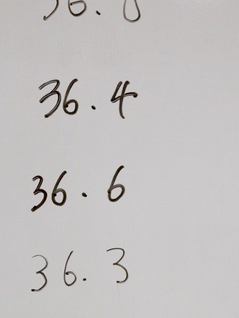 36.4
36.6
36.3